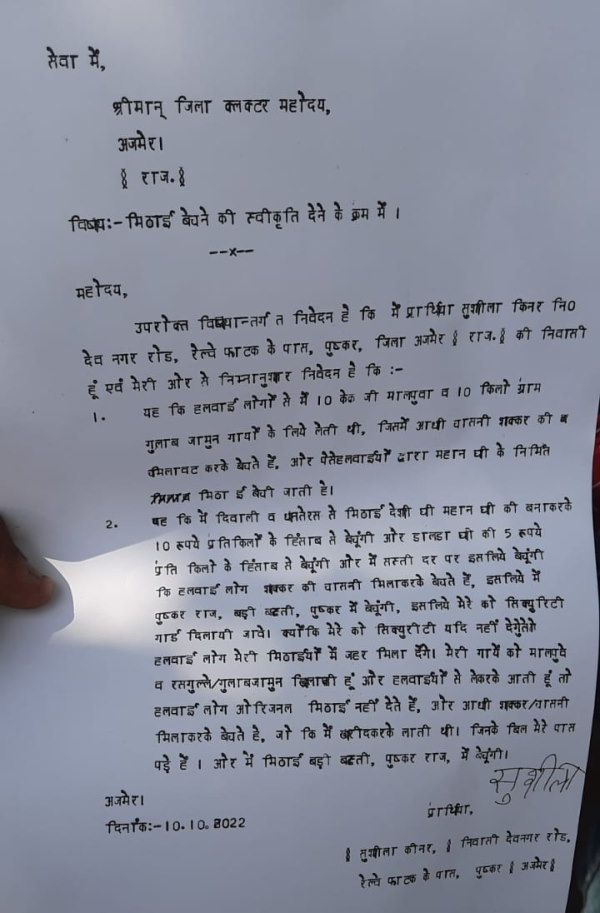 सेवा में,
श्रीमान् जिला क्लक्टर महोदय,
अजमेर।
§ राज.§
विषय:- मिठाई बेचने की स्वीकृति देने के क्रम में ।
--x--
महोदय,
उपरोक्त विषयान्तर्ग त निवेदन है कि में प्रार्थिया सुशीला किनर नि0
देव नगर रोड, रेल्वे फाटक के पास, पुष्कर, जिला अजमेर § राज.§ की निवासी
हूं एवं मेरी ओर से निम्नानुशार निवेदन है कि :-
1. यह कि हलवाई लोगों से में 10 केक जी मालपुवा व 10 किलो ग्राम
गुलाब जामुन गायों के लिये लेती थी, जिसमें आधी चासनी शक्कर की
मिलावट करके बेचते हैं, और ऐसेहलवाईयों द्वारा महान घी के निमित
मिठा ई बेची जाती है।
2. यह कि में दिवाली व धनतेरस से मिठाई देशी घी महान घी की बनाकरके
10 रूपये प्रतिकिलों के हिंसाब से बेचूंगी और डालडा घी की 5 रूपये
प्रति किलो के हिंसाब से बेचूंगी और में सस्ती दर पर इसलिये बेचूंगी
कि हलवाई लोग शक्कर की चासनी मिलाकरके बेचते हैं, इसलिये में
पुष्कर राज, बड़ी बस्ती, पुष्कर में बेचूंगी, इसलिये मेरे को सिक्युरिटी
गार्ड दिलायी जावे। क्योंकि मेरे को सिक्युरीटी यदि नहीं देगेंतो
हलवाई लोग मेरी मिठाईयों में जहर मिला देंगे। मेरी गायें को मालपुवे
व रसगुल्ले/गुलाबजामुन खिलाती हूं और हलवाईयों से लेकरके आती हूं तो
हलवाई लोग ओरिजनल मिठाई नहीं देते हैं, और आधी शक्कर/चासनी
मिलाकरके बेचते है, जो कि में खरीदकरके लाती थी। जिनके बिल मेरे पास
पड़े हैं । ओर में मिठाई बड़ी बस्ती, पुष्कर राज, में बेचूंगी।
सुशीला
अजमेर।
प्रार्थिया,
दिनांक:-10.10.2022
§ सुशीला कीनर, § निवासी देवनगर रोड,
रेल्वे फाटक के पास, पुष्कर § अजमेर§